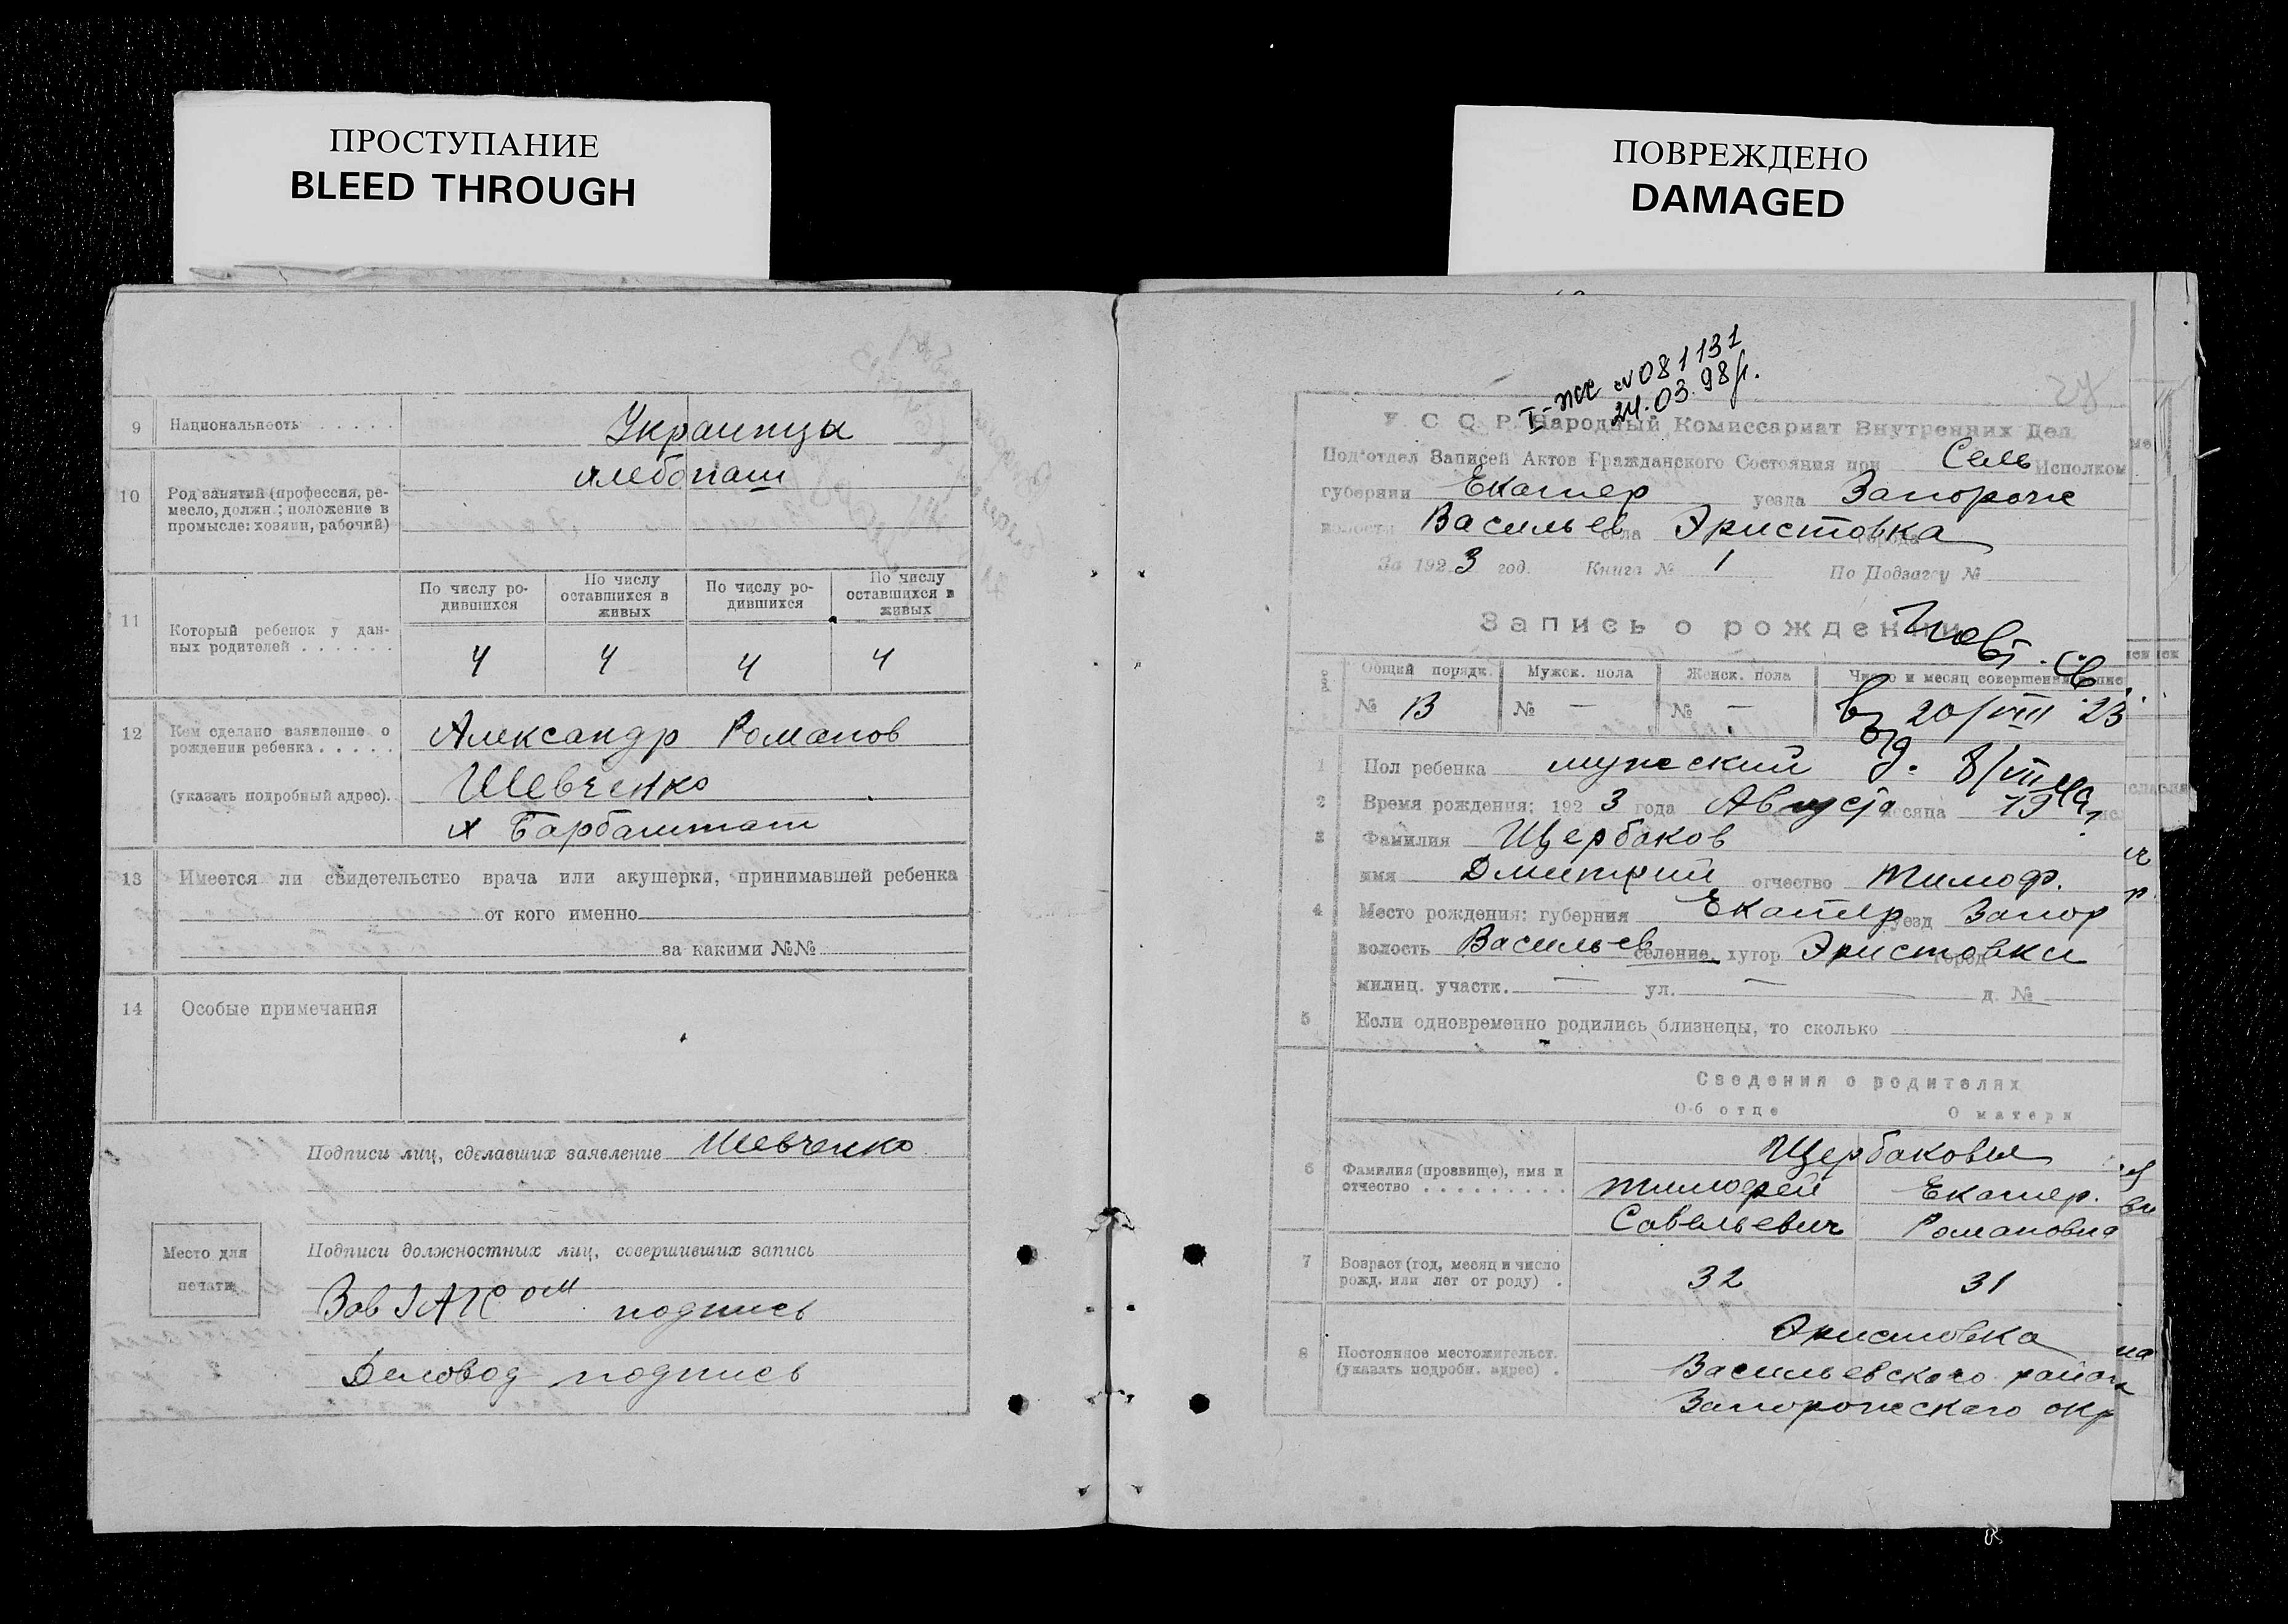 ПРОСТУПАНИЕ
BLEED THROUGH
ПОВРЕЖДЕНО
DAMAGED
9 Национальность . . . . . Украинцы
10 Род занятий (профессия, ре-
месло, должн.; положение в
промысле: хозяин, рабочий)
хлебопаш
11 Который ребенок у дан-
ных родителей . . . . . .
По числу ро-
дившихся
По числу
оставшихся в
живых
По числу ро-
дившихся
По числу
оставшихся в
живых
4 4 4 4
12 Кем сделано заявление о
рождении ребенка . . . . .
(указать подробный адрес).
Александр Романов
Шевченко
х Барбаштат
13 Имеется ли свидетельство врача или акушерки, принимавшей ребенка
от кого именно
за какими №№
14 Особые примечания
Подписи лиц, сделавших заявление Шевченко
Место для
печати
Подписи должностных лиц, совершивших запись
Зав ЗАГСом подпись
Деловод подпись
I-жс № 081131
24.03.98г.
У С С Р. Народный Комиссариат Внутренних Дел
Под'отдел Записей Актов Гражданского Состояния при Сель Исполком
губернии Екатер уезда Запорож
волости Васильев села Эристовка города
За 1923 год. Книга № 1 По Подзагсу №
Запись о рождении
Общий порядк. Мужск. пола Женск. пола Число и месяц совершения записи
№ 13 № — № — 20/VIII 23
1 Пол ребенка мужеский
8/VIII
2 Время рождения: 1923 года Августа месяца 19
3 Фамилия Щербаков
имя Дмитрий отчество Тимоф.
4 Место рождения: губерния Екатер уезд Запор
волость Васильев селение, хутор Эристовки город
милиц. участк. — ул. — д. №
5 Если одновременно родились близнецы, то сколько
Сведения о родителях
Об отце О матери
6 Фамилия (прозвище), имя и
отчество . . . . . . . . .
Щербаковы
Тимофей Екатер.
Савельевич Романовна
7 Возраст (год, месяц и число
рожд. или лет от роду) .
32 31
8 Постоянное местожительст.
(указать подробн. адрес) .
Эристовка
Васильевского района
Запорожского окр